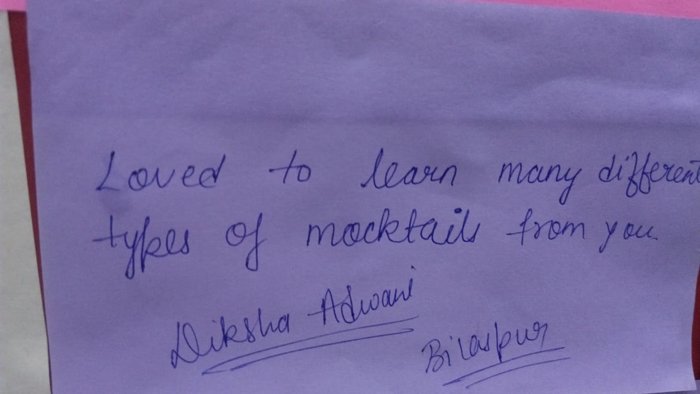 Loved to learn many different
types of mocktails from you.
Diksha Adwani
Bilaspur